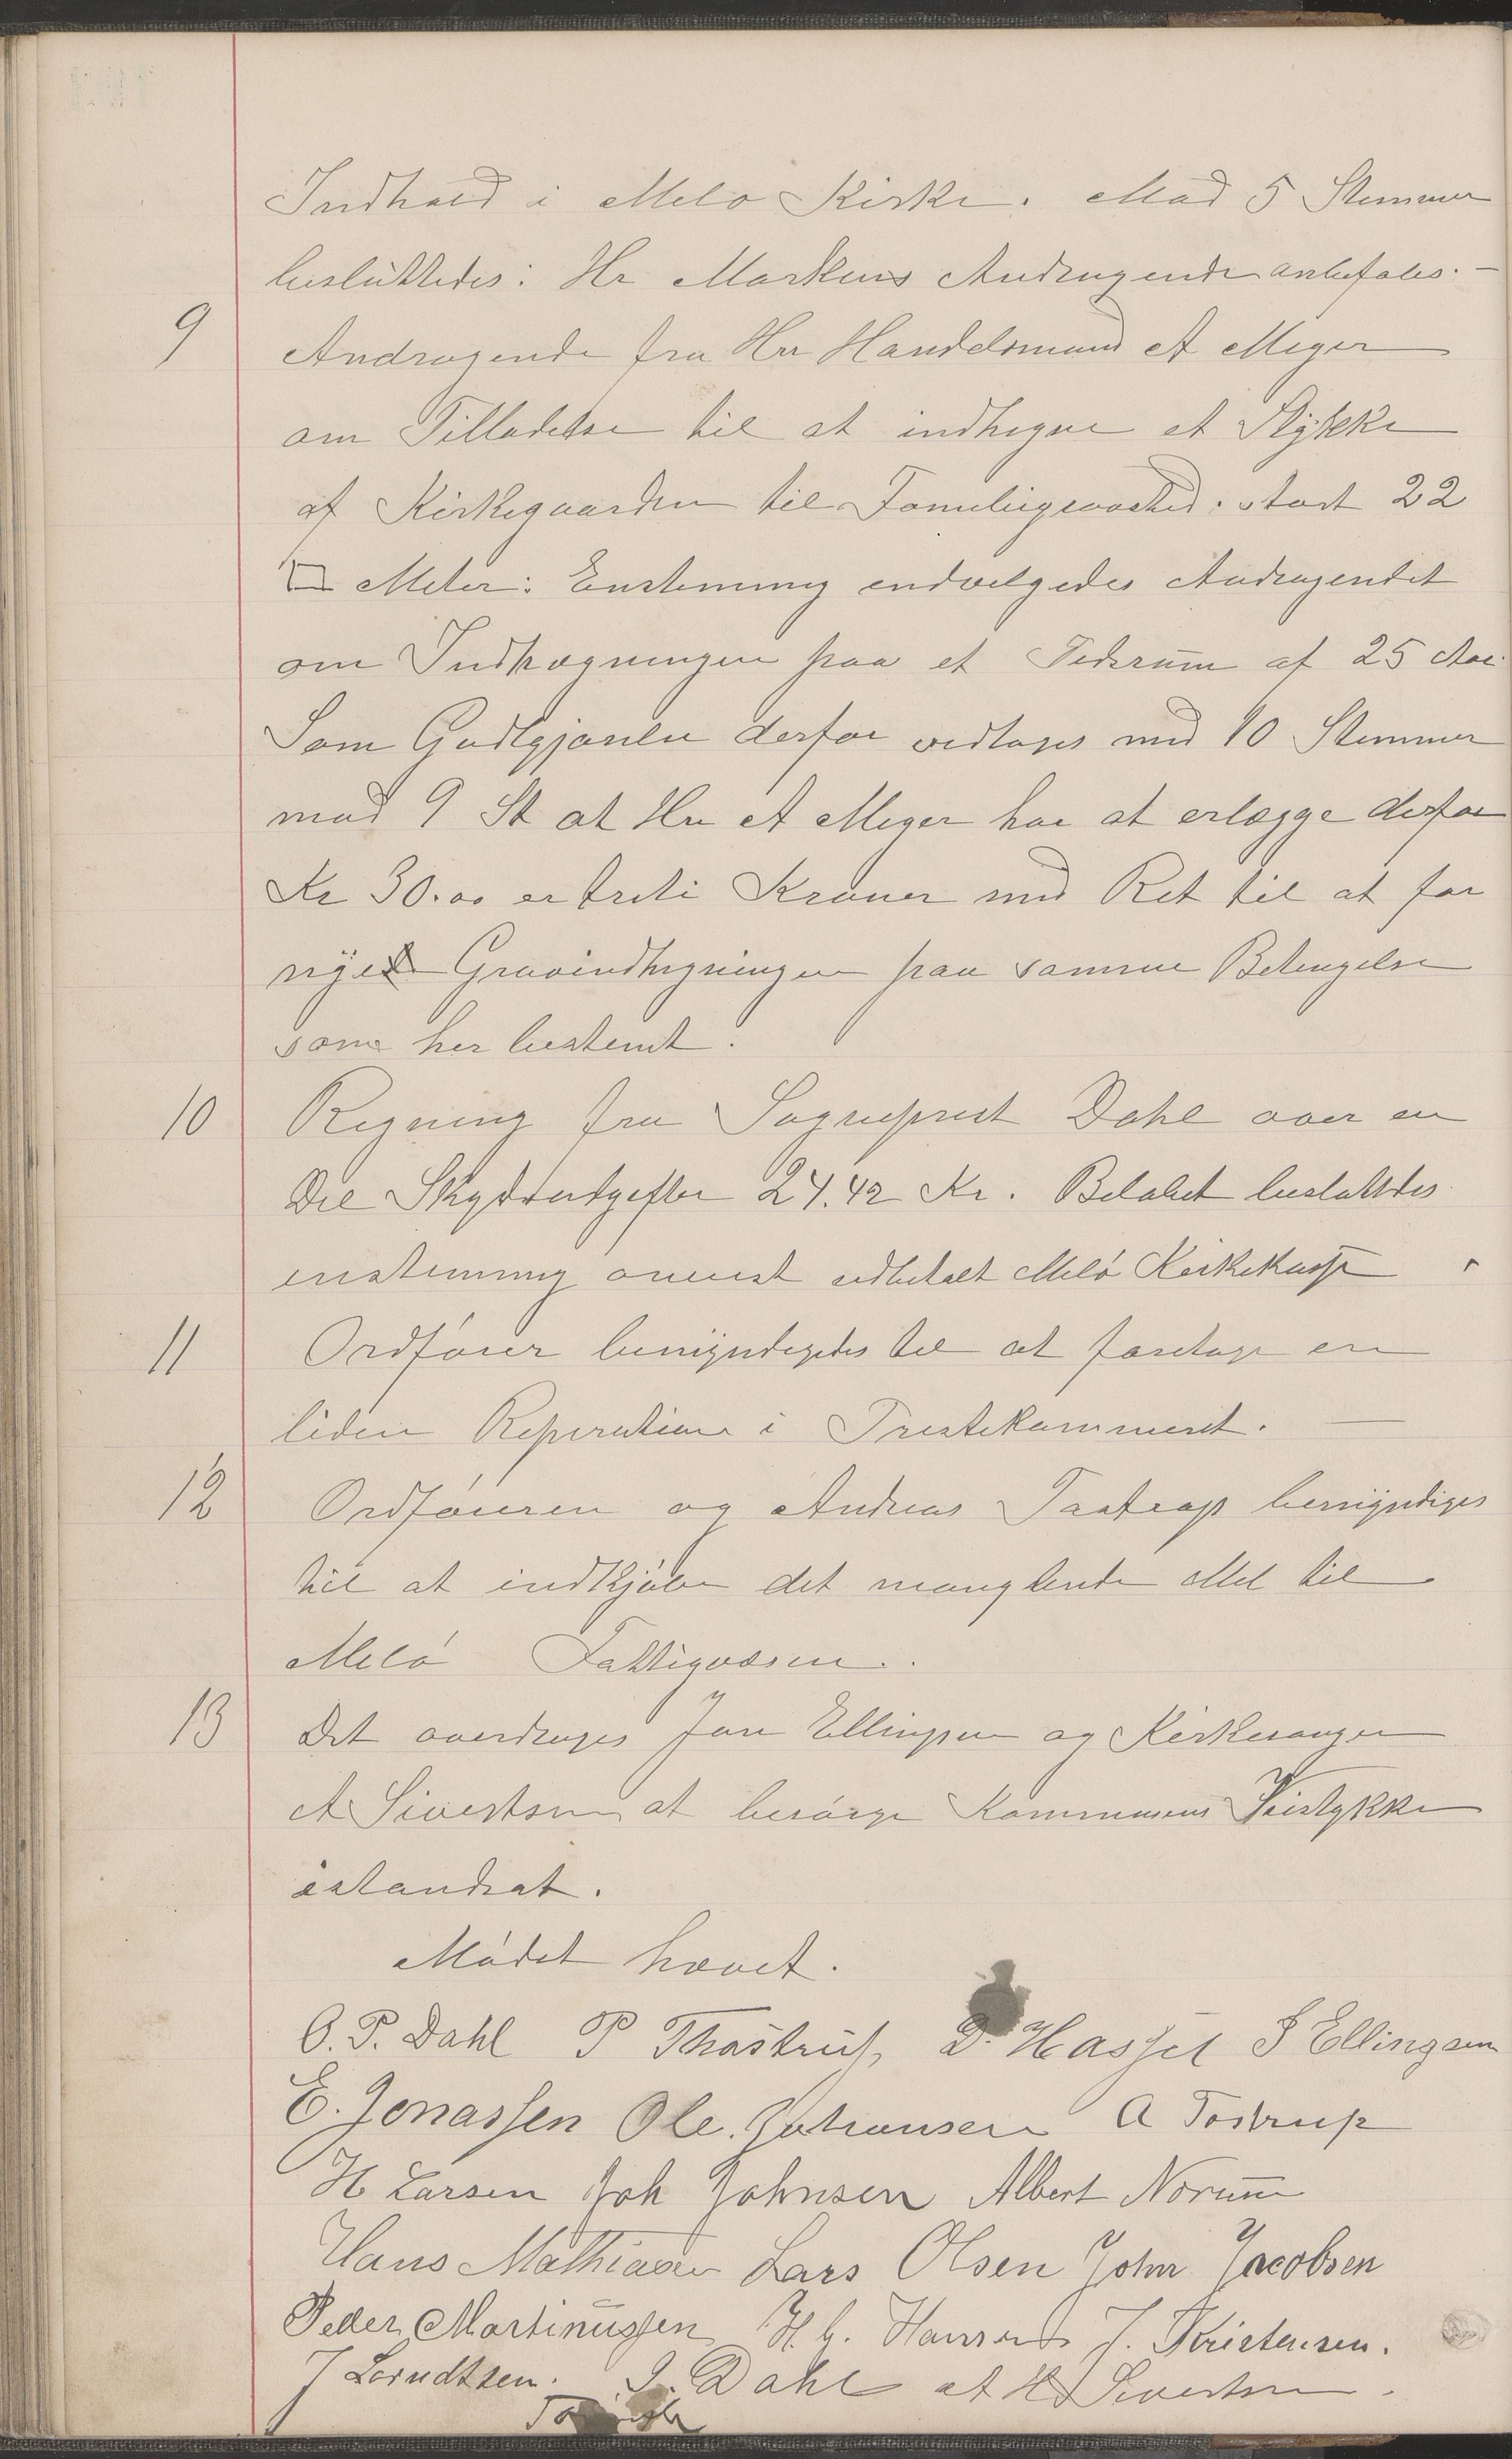 Indhold i Melø Kirke. Mod 5 Stemmer
besluttedes: Hr Markus Andragende anbefales. —
9 Andragende fra Hr Handelsmand A Meyer
om Tilladelse til at indhegne et Stykke
af Kirkegaarden til Familiegravsted. stort 22
□ Meter: Enstemmig indvilgedes Andragendet
om Indhægningen paa et Tidsrum af 25 Aar.
Som Godtgjørelse derfor vedtages med 10 Stemmer
mod 9 St at Hr A Meyer har at erlægge derfor
Kr 30.00 er treti Kroner med Ret til at for
nye Gravindhegningen paa samme Betingelse
som her bestemt.
10 Regning fra Sogneprest Dahl over en
Del Skydsudgifter 24.42 Kr. Beløbet besluttedes
enstemmig anvist udbetalt Melø Kirkekasse
11 Ordfører bemyndigedes til at foretage en
liden Reperation i Prestekammeret. —
12 Ordføreren og Andreas Tastrup bemyndiges
til at indkjøbe det manglende Mel til
Melø Fattigvæsen.
13 Det overdrages Jon Ellingsen og Kirkesanger
A Sivertsen at besørge Kommunens
istandsat.
Mødet hævet.
O. P. Dahl P Thastrup, D. Hassel S Ellingsen
E. Jonassen Ole. Johansen A Tostrup
H Larsen Joh Johnsen Albert Norum
Hans Mathiasen Lars Olsen John Jacobsen
Peder Martinussen H. G. Hansen J. Kristensen.
J Lorndtsen. I. Dahl A H Sivertsen.